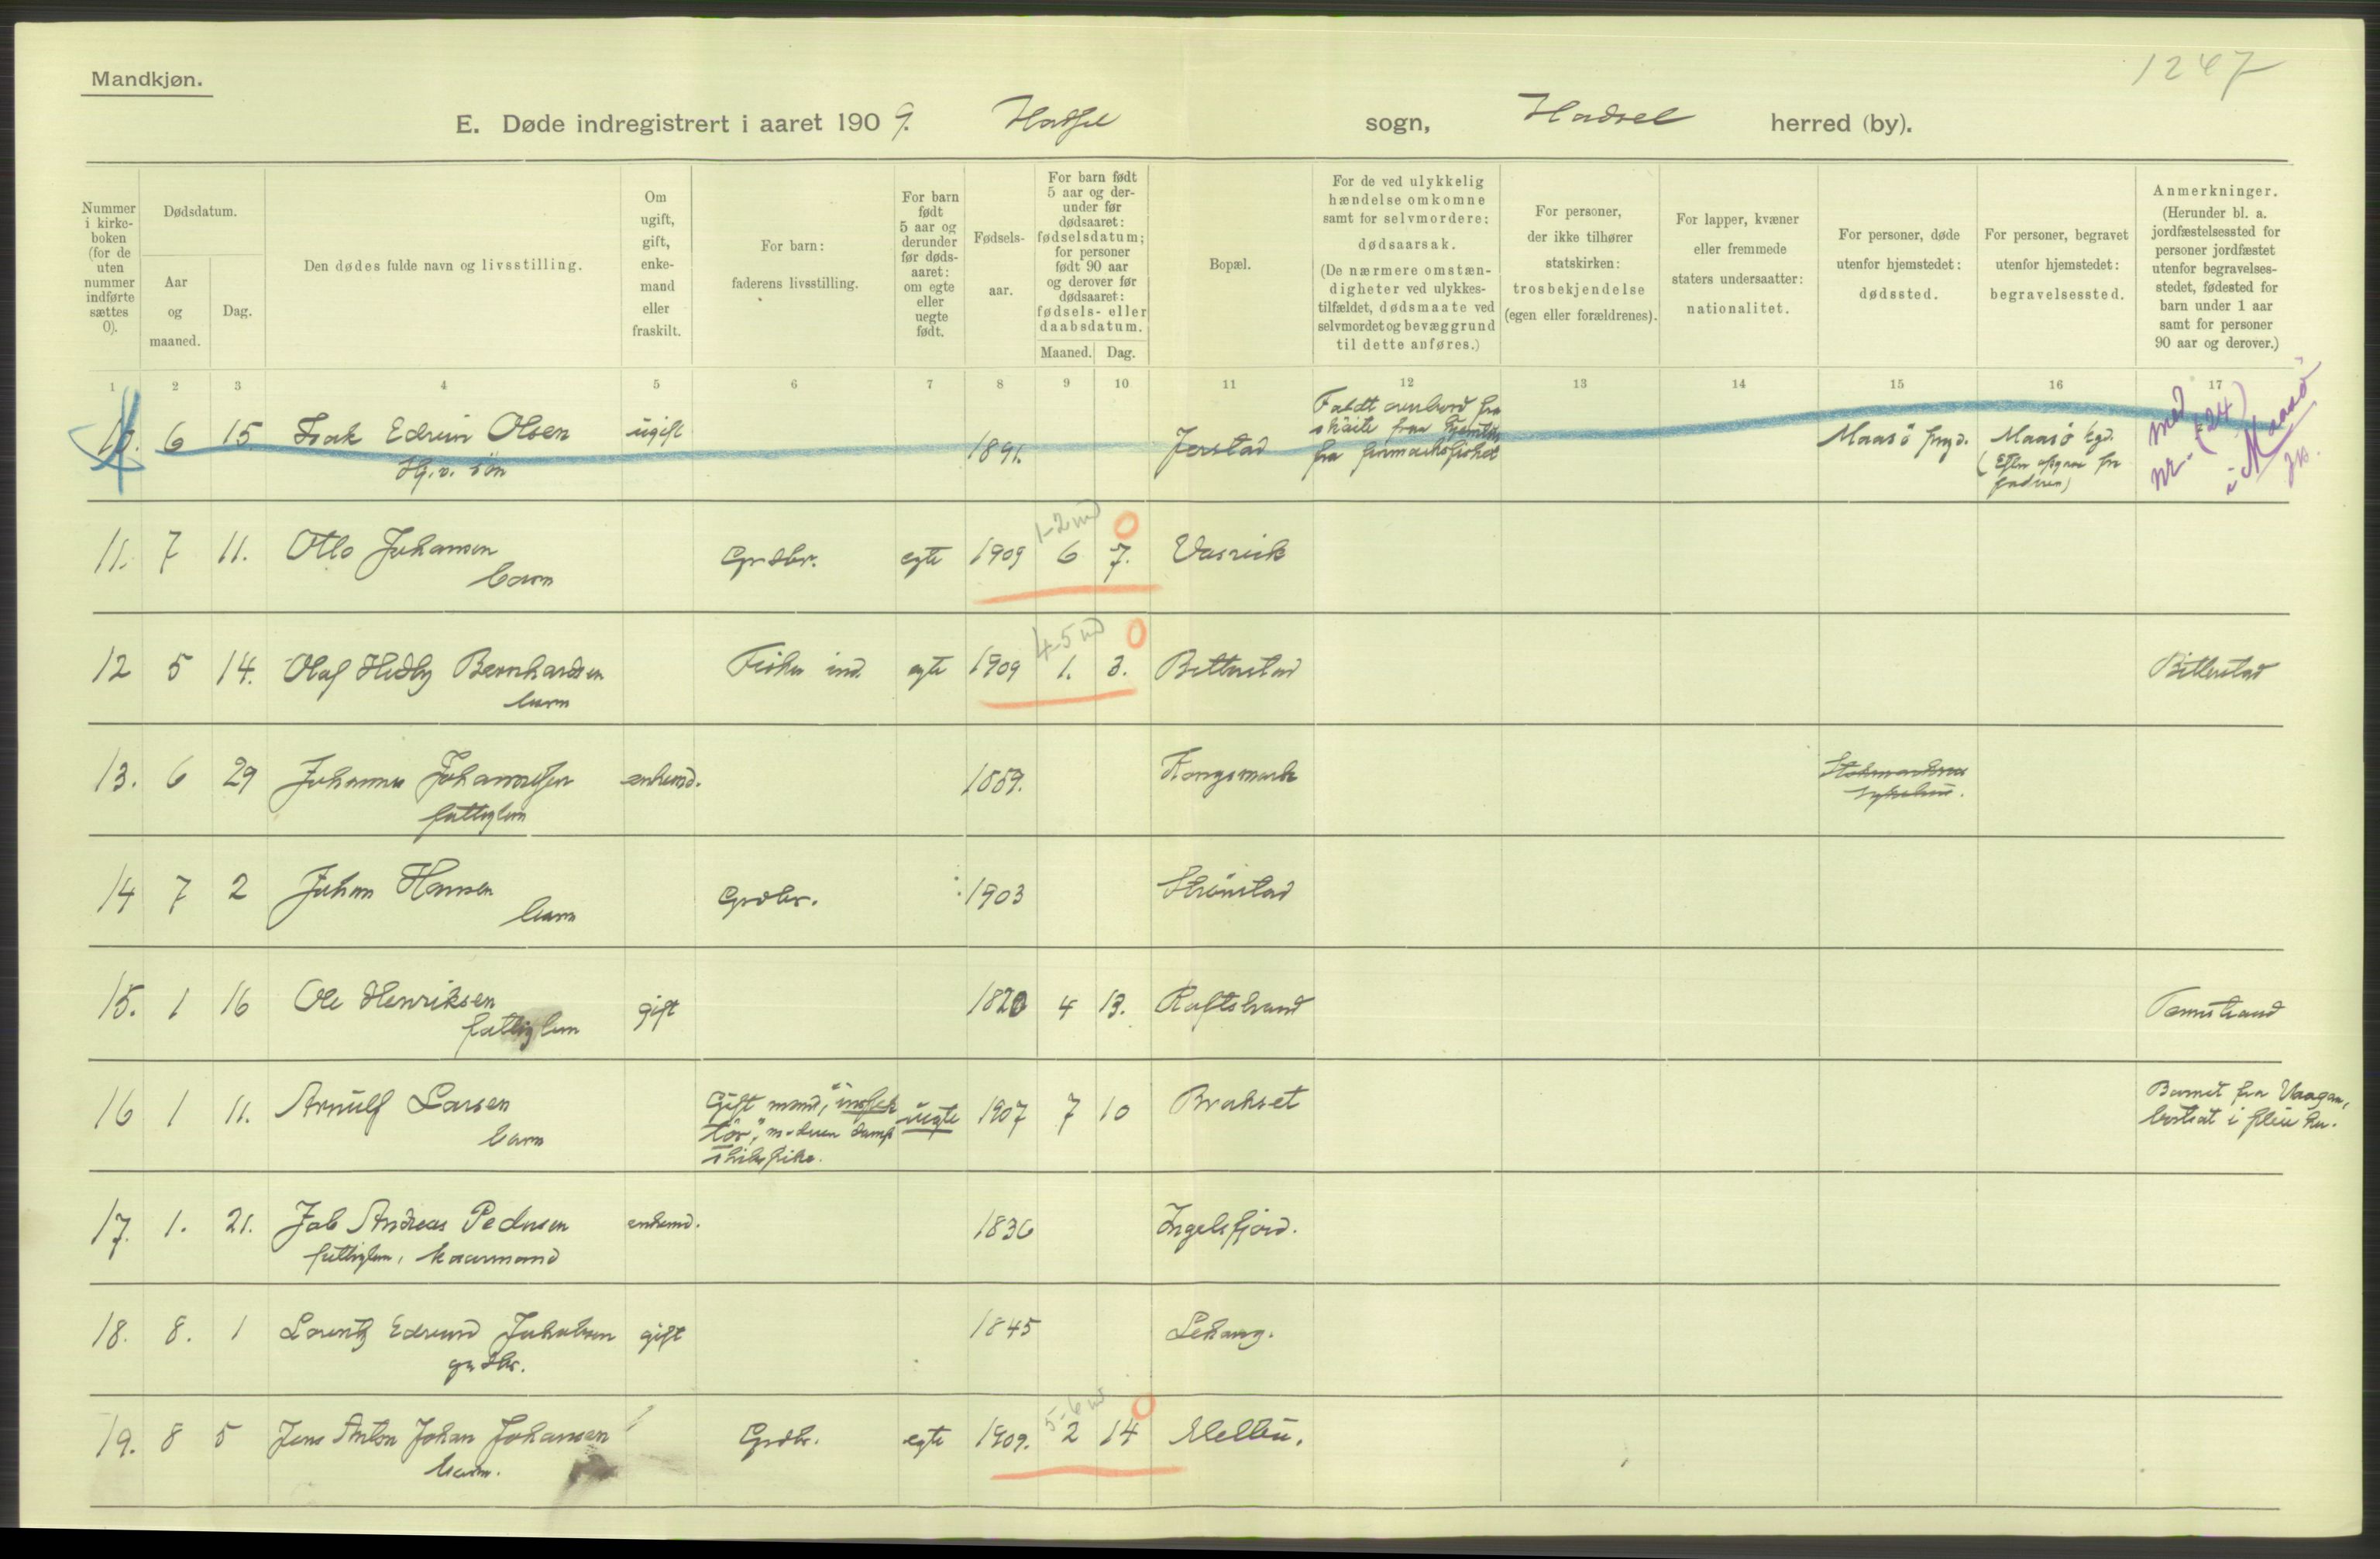 1247
Mandkjøn.
E. Døde indregistrert i aaret 1909. Hadsel sogn, Hadsel herred (by).
Nummer i kirke-boken (for de uten nummer indførte sættes 0).
Dødsdatum.
Aar og maaned.
Dag.
Den dødes fulde navn og livsstilling.
Om ugift, gift, enke-mand eller fraskilt.
For barn: faderens livsstilling.
For barn født 5 aar og derunder før døds-aaret: om egte eller uegte født.
Fødsels-aar.
For barn født 5 aar og der-under før dødsaaret: fødselsdatum; for personer født 90 aar og derover før dødsaaret: fødsels- eller daabsdatum.
Maaned. Dag.
Bopæl.
For de ved ulykkelig hændelse omkomne samt for selvmordere: dødsaarsak. (De nærmere omstæn-digheter ved ulykkes-tilfældet, dødsmaate ved selvmordet og bevæggrund til dette anføres.)
For personer, der ikke tilhører statskirken: trosbekjendelse (egen eller forældrenes).
For lapper, kvæner eller fremmede staters undersaatter: nationalitet.
For personer, døde utenfor hjemstedet: dødssted.
For personer, begravet utenfor hjemstedet: begravelsessted.
Anmerkninger. (Herunder bl. a. jordfæstelsessted for personer jordfæstet utenfor begravelses-stedet, fødested for barn under 1 aar samt for personer 90 aar og derover.)
1 2 3 4 5 6 7 8 9 10 11 12 13 14 15 16 17
10. 6 15 Isak Edvin Olsen ugift 1891. Jerstad Faldt overbord fra
skøite fra
fra finmarksfisket Maasö prgd. Maasö kgd.
Hg.v. sön (Efter opgave fra
faderen)
med nr. (24) i Maasø
11. 7 11. Otto Johansen Grdbr. egte 1909 6 7. Vasvik
barn
1-2 md 0
12 5 14. Olaf Hedly Bernhardsen Fisker ind. egte 1909 1. 3. Bitterstad Bitterstad
barn
4-5 md 0
13. 6 29 Johannes Johannesen enkemd. 1859. Kongsmark Stokmarknes
fattiglem sykehus.
14 7 2 Johan Hansen Grdbr. 1903 Strönstad
barn
15. 1 16 Ole Henriksen gift 1820 4 13. Raftstrand Tennstrand
fattiglem
16 1 11. Arnulf Larsen Gift mand, "inspek uegte 1907 7 10 Brakset Barnet fra Vaagan,
barn tör", moderen damp bortsat i
skibspike.
17. 1. 21. Job Andreas Pedersen enkemd. 1836 Ingelsfjord.
fattiglem, kaarmand
18. 8. 1 Lorentz Edvard Jakobsen gift 1845 Lekang.
grdbr.
19. 8 5 Jens Anton Johan Johansen Grdbr. egte 1909. 2 14 Melbu.
barn.
5-6 md 0